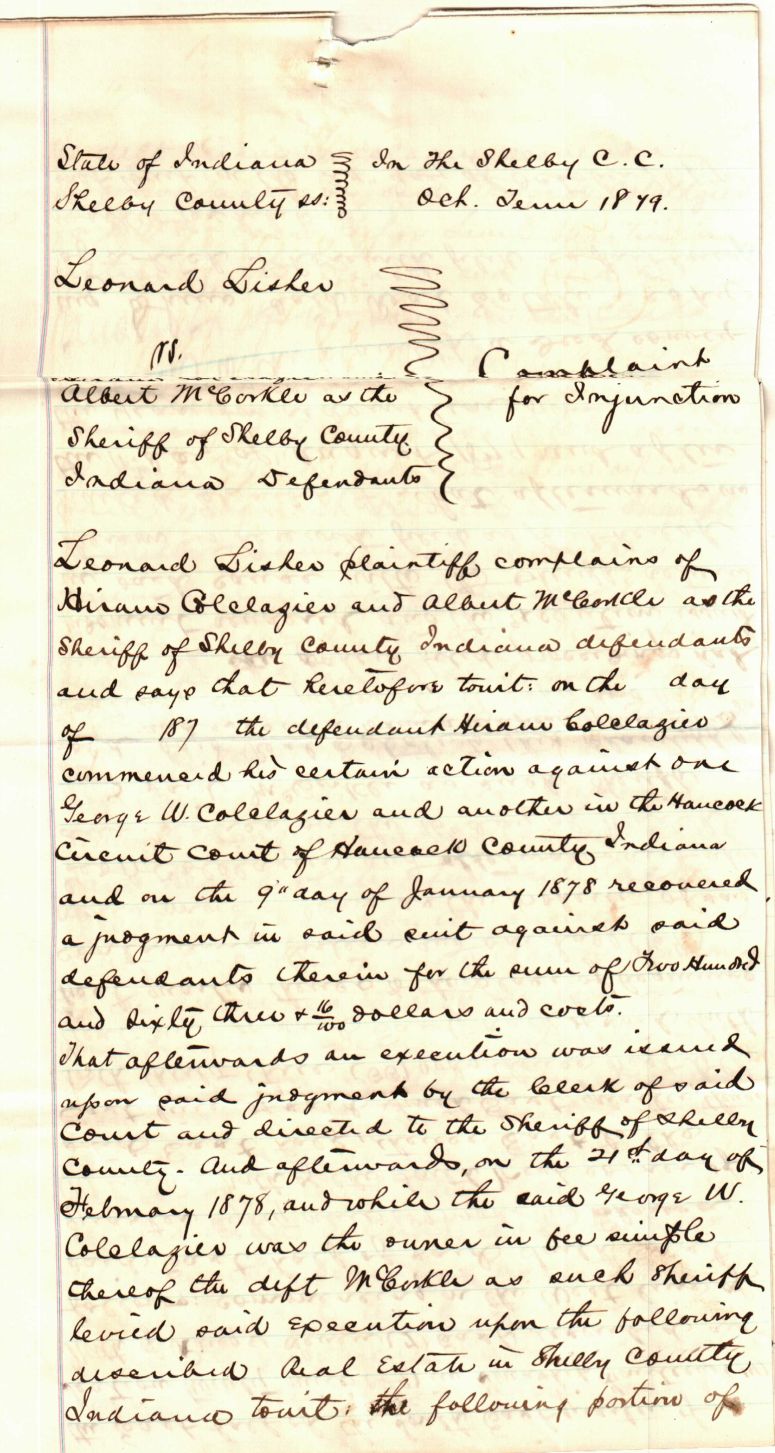 State of Indiana In the Shelby C. C.
Shelby County ss: Oct. Term 1879.
Leonard Lisher
vs.
Complaint
Albert McCorkle as the
for Injunction
Sheriff of Shelby County
Indiana Defendants
Leonard Lisher plaintiff complains of
Hiram Colclazier and Albert McCorkle as the
Sheriff of Shelby County Indiana defendants
and says that heretofore towit: on the day
of 187 the defendant Hiram Colclazier
commenced his certain action against one
George W. Colclazier and another in the Hancock
Circuit Court of Hancock County Indiana
and on the 9" day of January 1878 recovered
a judgment in said suit against said
defendants therein for the sum of Two Hundred
and Sixty three & 16/100 dollars and costs.
That afterwards an execution was issued
upon said judgment by the Clerk of said
Court and directed to the Sheriff of Shelby
County. And afterwards, on the 21st day of
February 1878, and while the said George W.
Colclazier was the owner in fee simple
thereof the deft McCorkle as such Sheriff
levied said execution upon the following
described Real Estate in Shelby County
Indiana towit: the following portion of